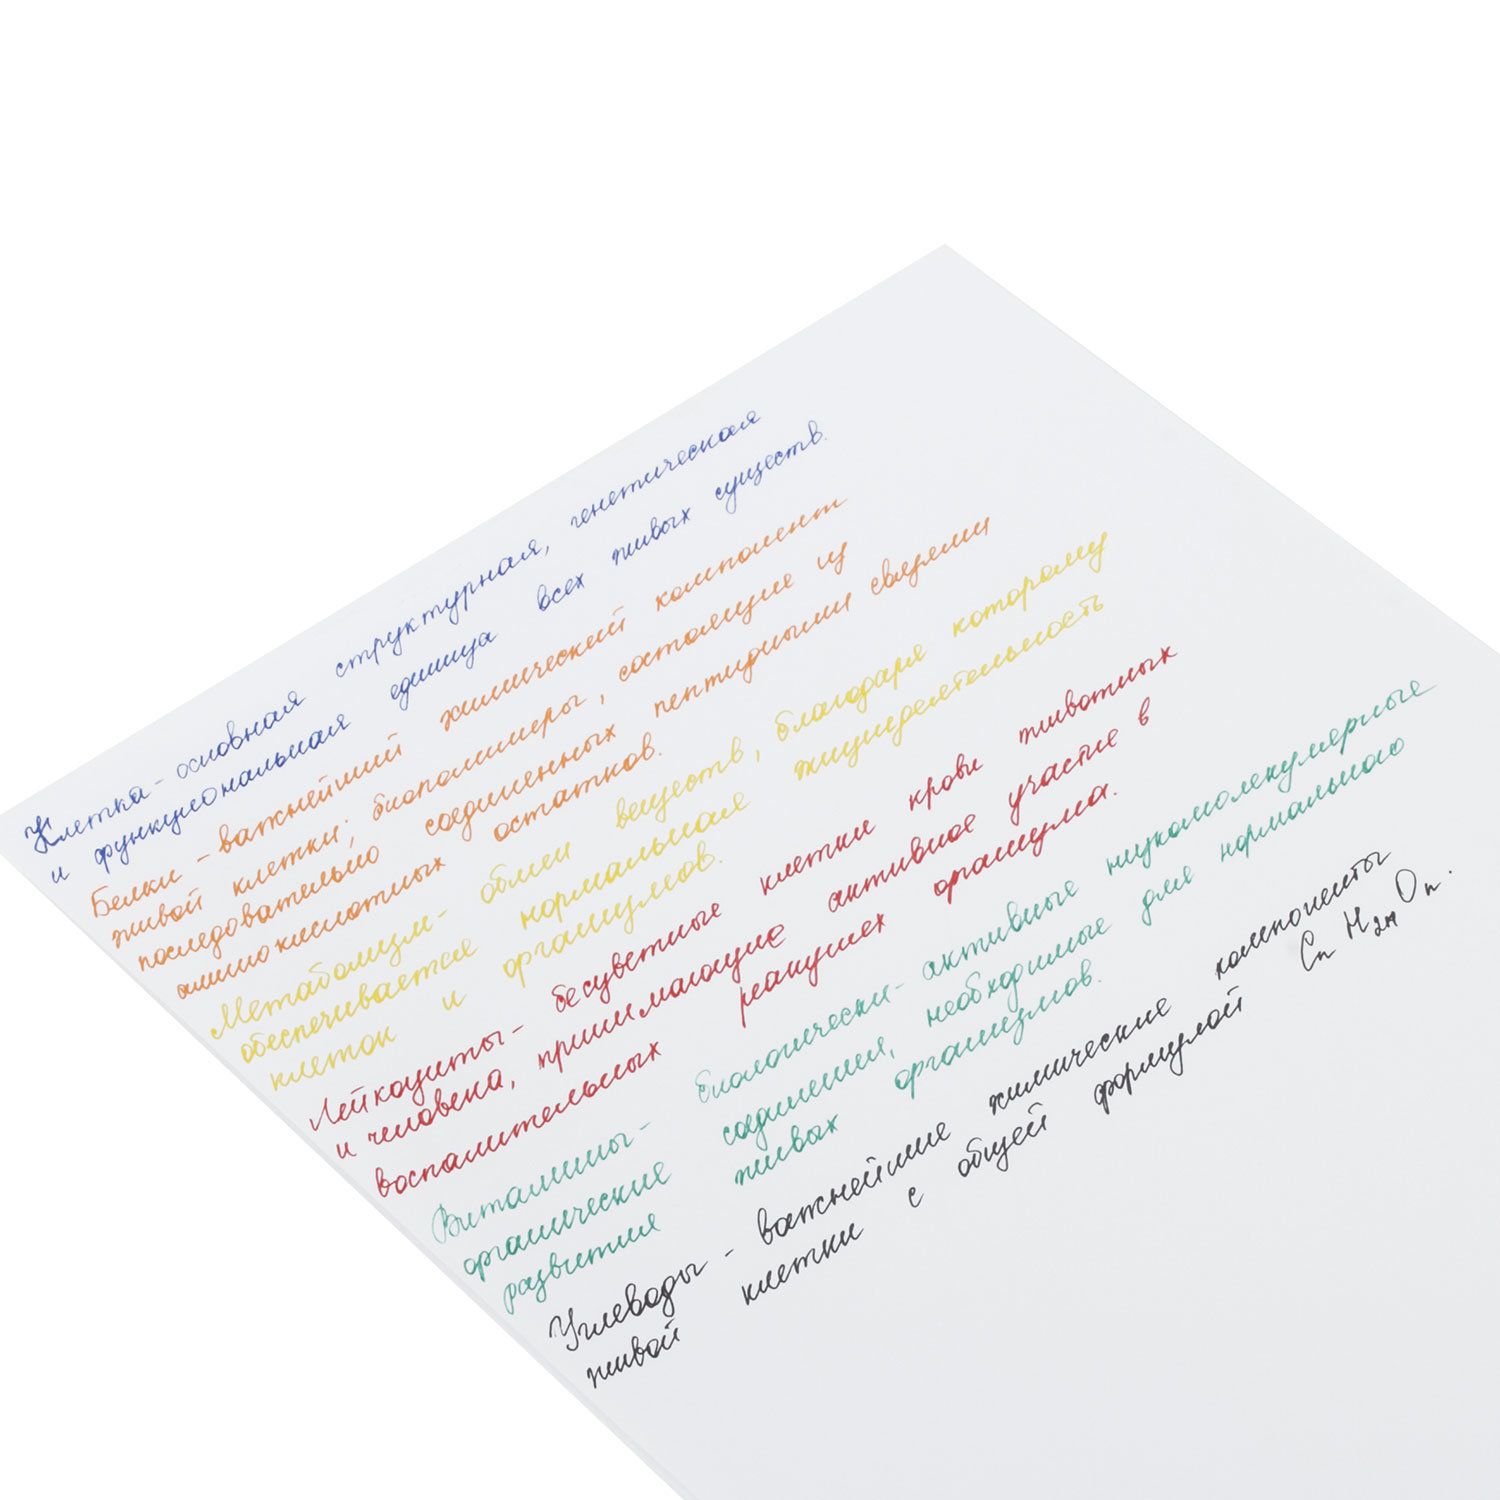 Клетка - основная структурная, генетическая
и функциональная единица всех живых существ.
Белки - важнейший химический компонент
живой клетки; биополимеры, состоящие из
последовательно соединенных пептидными связями
аминокислотных остатков.
Метаболизм - обмен веществ, благодаря которому
обеспечивается нормальная жизнедеятельность
клеток и организмов.
Лейкоциты - бесцветные клетки крови животных
и человека, принимающие активное участие в
воспалительных реакциях организма.
Витамины - биологически - активные низкомолекулярные
органические соединения, необходимые для нормального
развития живых организмов.
Углеводы - важнейшие химические компоненты
живой клетки с общей формулой Cn H2n On.